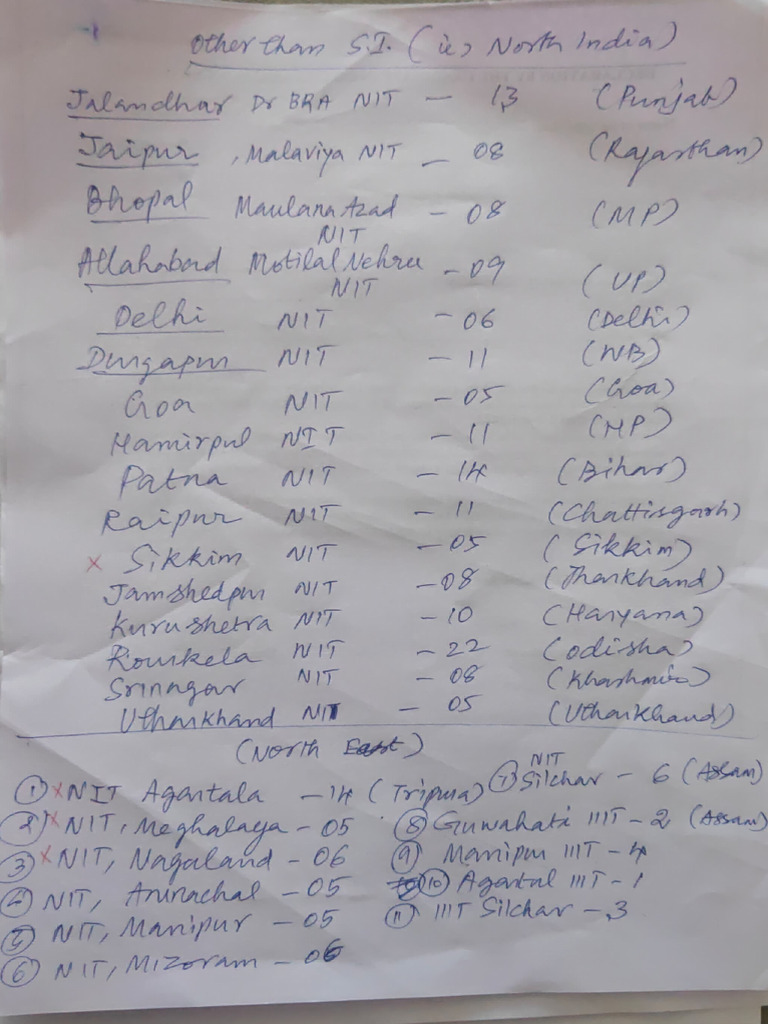 Other than S.I. (ie, North India)
Jalandhar Dr BRA NIT - 13 (Punjab)
Jaipur, Malaviya NIT - 08 (Rajasthan)
Bhopal Maulana Azad NIT - 08 (MP)
Allahabad Motilal Nehru NIT - 09 (UP)
Delhi NIT - 06 (Delhi)
Durgapur NIT - 11 (WB)
Goa NIT - 05 (Goa)
Hamirpul NIT - 11 (HP)
Patna NIT - 14 (Bihar)
Raipur NIT - 11 (Chattisgarh)
x Sikkim NIT - 05 (Sikkim)
Jamshedpur NIT - 08 (Jharkhand)
Kurushetra NIT - 10 (Haryana)
Rourkela NIT - 22 (Odisha)
Srinagar NIT - 08 (Khashmir)
Utharkhand NIT - 05 (Utharkhand)
(North East)
① x NIT Agartala - 14 (Tripura)
② x NIT, Meghalaya - 05
③ x NIT, Nagaland - 06
④ NIT, Arunachal - 05
⑤ NIT, Manipur - 05
⑥ NIT, Mizoram - 06
⑦ NIT Silchar - 6 (Assam)
⑧ Guwahati IIIT - 2 (Assam)
⑨ Manipur IIIT - 4
⑩ Agartal IIIT - 1
⑪ IIIT Silchar - 3